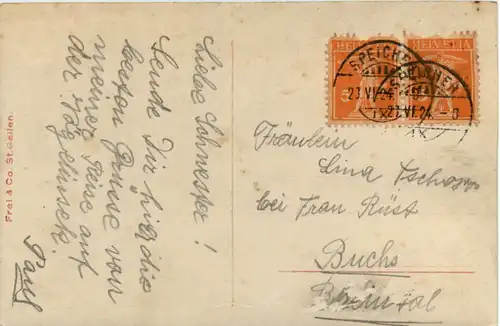 Liebe Schwester!
Sende Dir hier die
besten Grüsse von
meiner Reise auf
der Vögelinsek.
Paul
Frei & Co. St. Gallen.
HELVETIA
HELVETIA
SPEICHER
23.VI.24
SPEICHER
23.VI.24.-0
IX
Fräulein
Lina Tschopp
bei Frau Rüst
Buchs
Rheintal